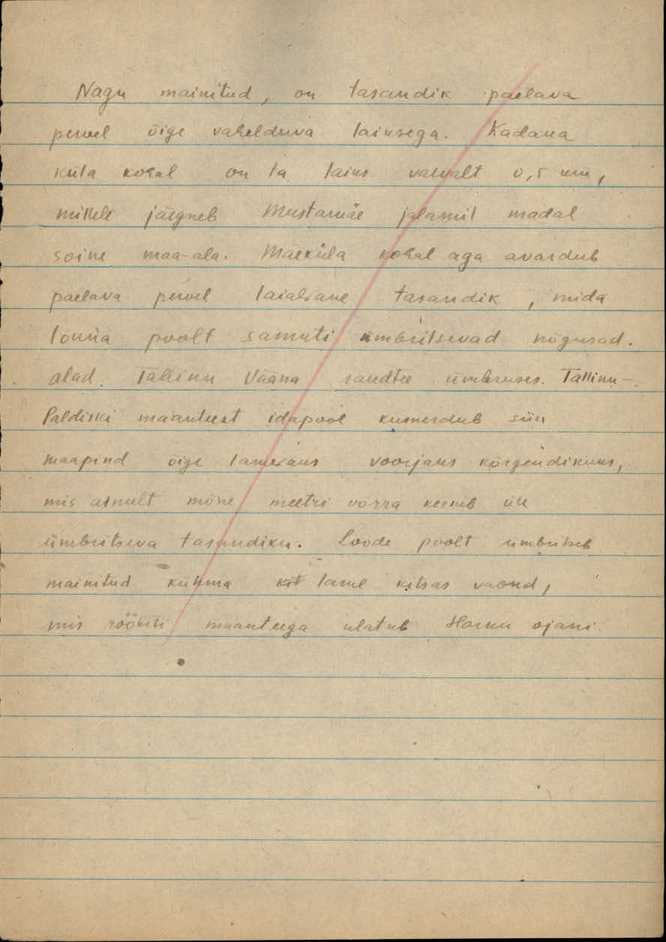 Nagu mainitud, on tasandik paelava
pervel õige vahelduva laiusega. Kadana
küla kohal on ta laius vaevalt 0,5 km,
millele järgneb Mustamäe jalamil madal
soine maa-ala. Mäeküla kohal aga avardub
paelava pervel laialdane tasandik, mida
lõuna poolt samuti ümbritsevad nõgusad
alad Tallinn Vääna raudtee ümbruses. Tallinn-
Paldiski maanteest idapool kumerdub siin
maapind õige lamedaks voorjaks kõrgendikuks,
mis ainult mõne meetri võrra kerkib üle
ümbritseva tasandiku. Loode poolt ümbritseb
mainitud kühma lame kitsas vagond,
mis rööbiti maanteega ulatub Harku ojani.